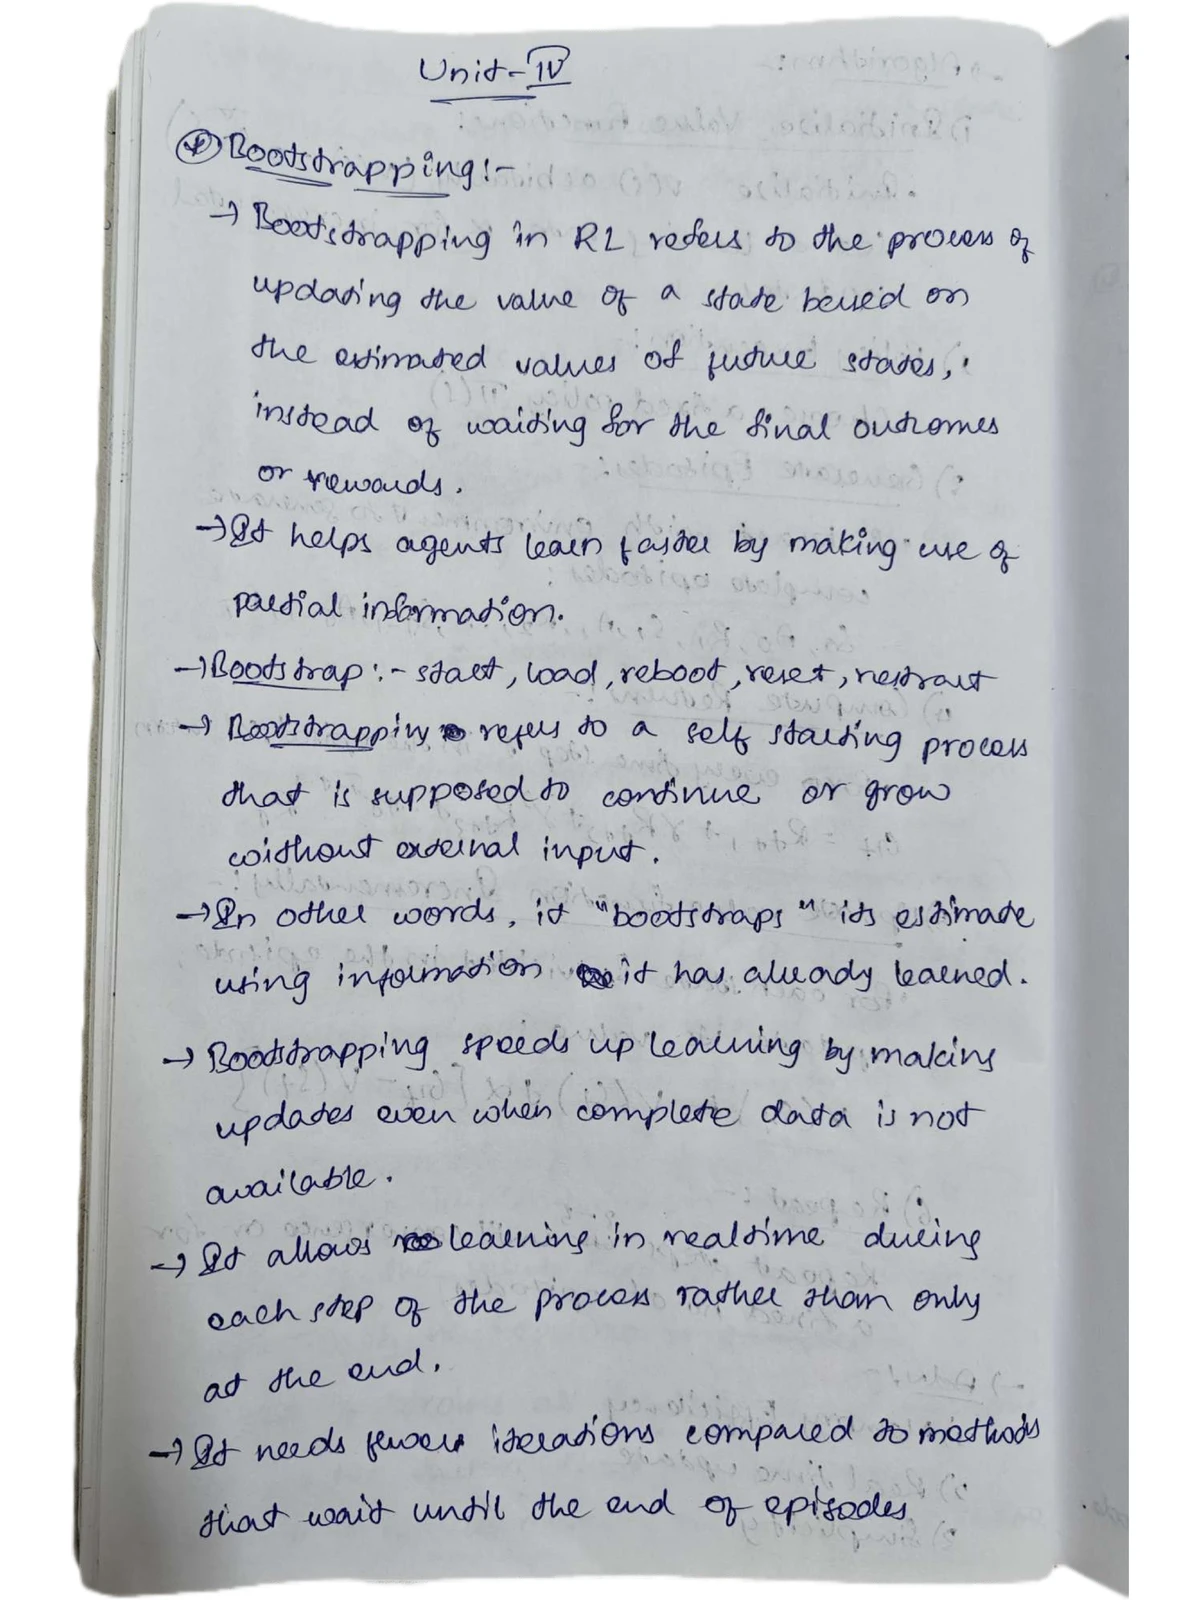 Unit-IV
* Bootstrapping:-
→ Bootstrapping in RL refers to the process of
updating the value of a state based on
the estimated values of future states,
instead of waiting for the final outcomes
or rewards.
→ It helps agents learn faster by making use of
partial information.
→ Bootstrap:- start, load, reboot, reset, restart
→ Bootstrapping refers to a self starting process
that is supposed to continue or grow
without external input.
→ In other words, it "bootstraps" its estimate
using information it has already learned.
→ Bootstrapping speeds up learning by making
updates even when complete data is not
available.
→ It allows learning in realtime during
each step of the process rather than only
at the end.
→ It needs fewer iterations compared to methods
that wait until the end of episodes